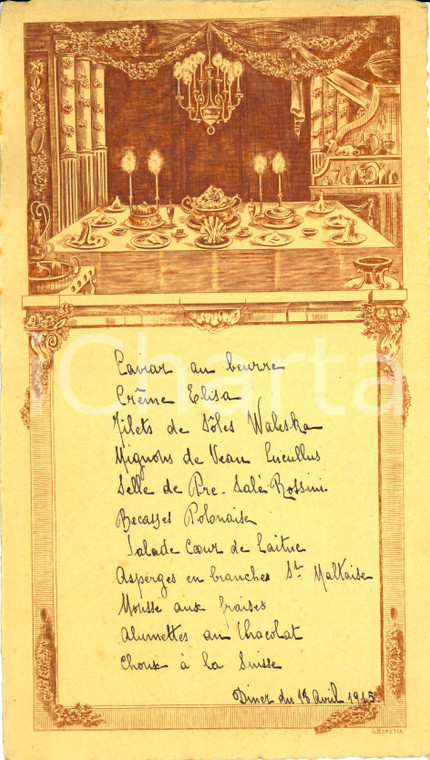 Caviar au beurre
Crème Elisa
Filets de Sôles Waleska
Mignons de Veau Lucullus
Selle de Pré-Salé Rossini
Becasses Polonaise
Salade Cœur de Laitue
Asperges en branches Sce Maltaise
Mousse aux fraises
Alumettes au Chocolat
Choux à la Suisse
Diner du 18 Avril 1915
iCharta